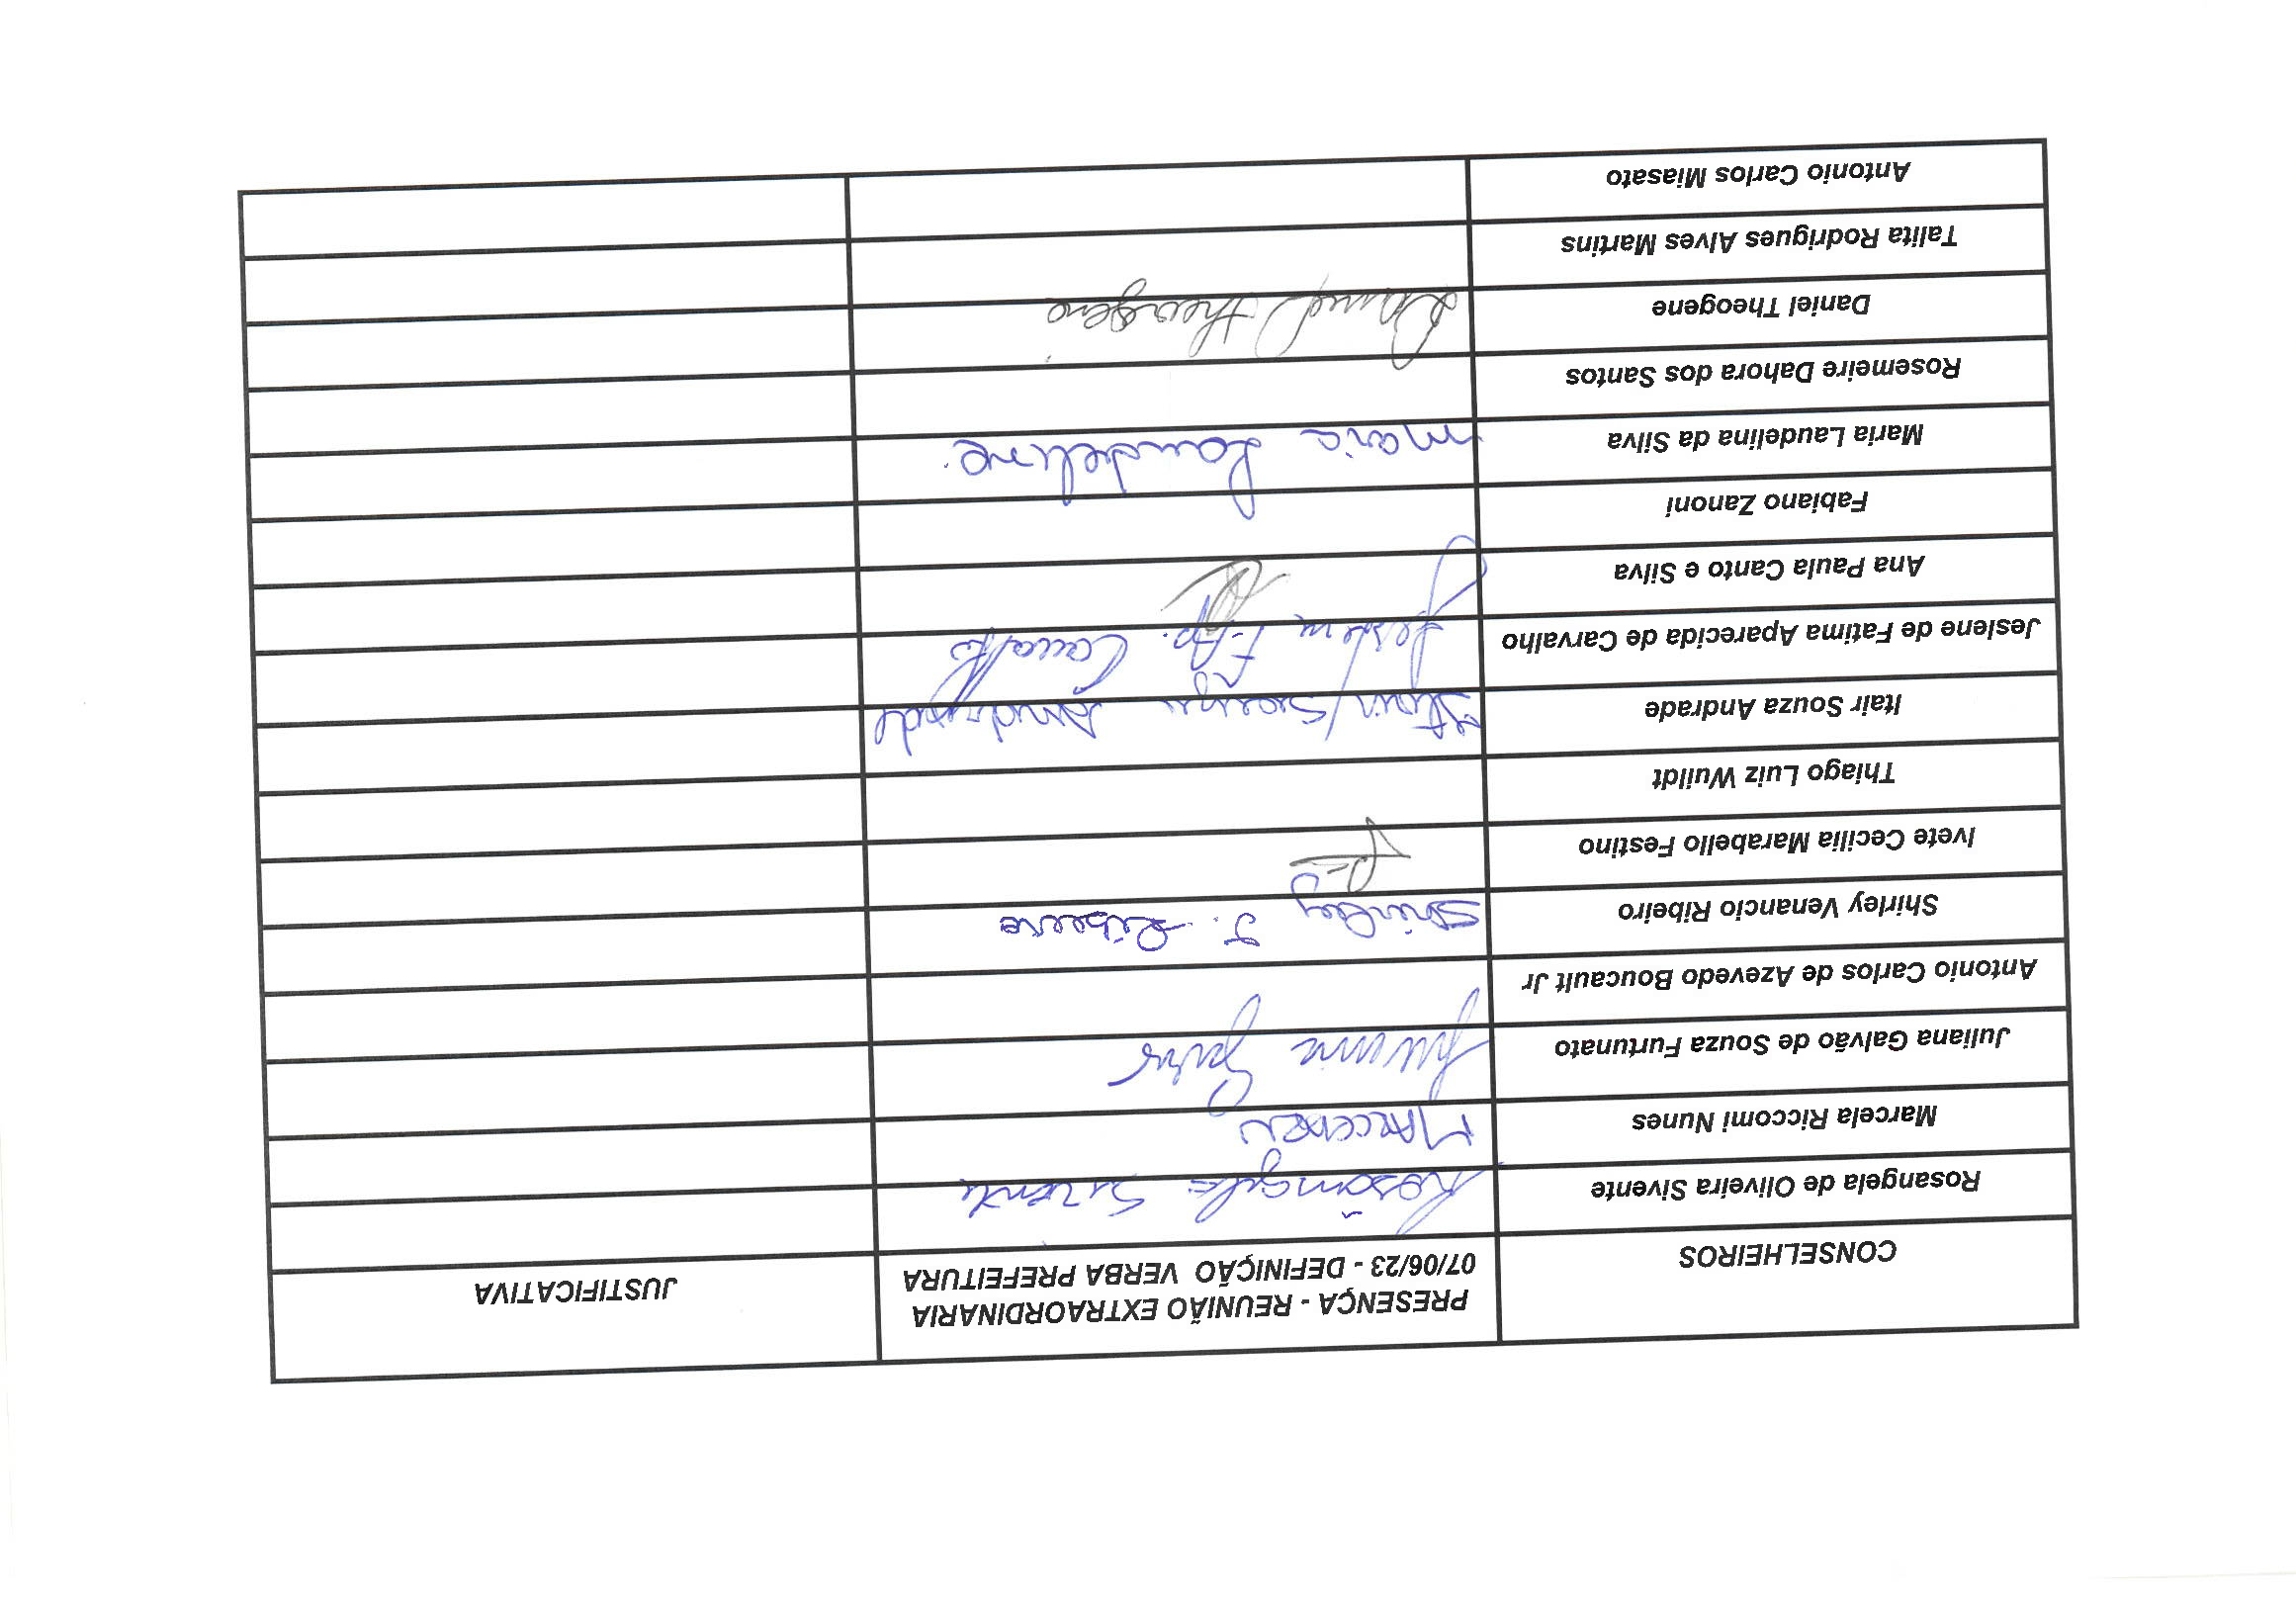 CONSELHEIROS
PRESENÇA - REUNIÃO EXTRAORDINARIA
07/06/23 - DEFINIÇÃO VERBA PREFEITURA
JUSTIFICATIVA
Rosangela de Oliveira Sivente
Rosângela Sivente
Marcela Riccomi Nunes
Juliana Galvão de Souza Furtunato
Juliana
Antonio Carlos de Azevedo Boucault Jr
Shirley Venancio Ribeiro
Shirley J. Ribeiro
Ivete Cecilia Marabello Festino
Thiago Luiz Wuildt
Itair Souza Andrade
Itair Souza Andrade
Jeslene de Fatima Aparecida de Carvalho
Jeslene F. Ap. Carvalho
Ana Paula Canto e Silva
Fabiano Zanoni
Maria Laudelina da Silva
Maria Laudelina
Rosemeire Dahora dos Santos
Daniel Theogene
Daniel Theogene
Talita Rodrigues Alves Martins
Antonio Carlos Miasato